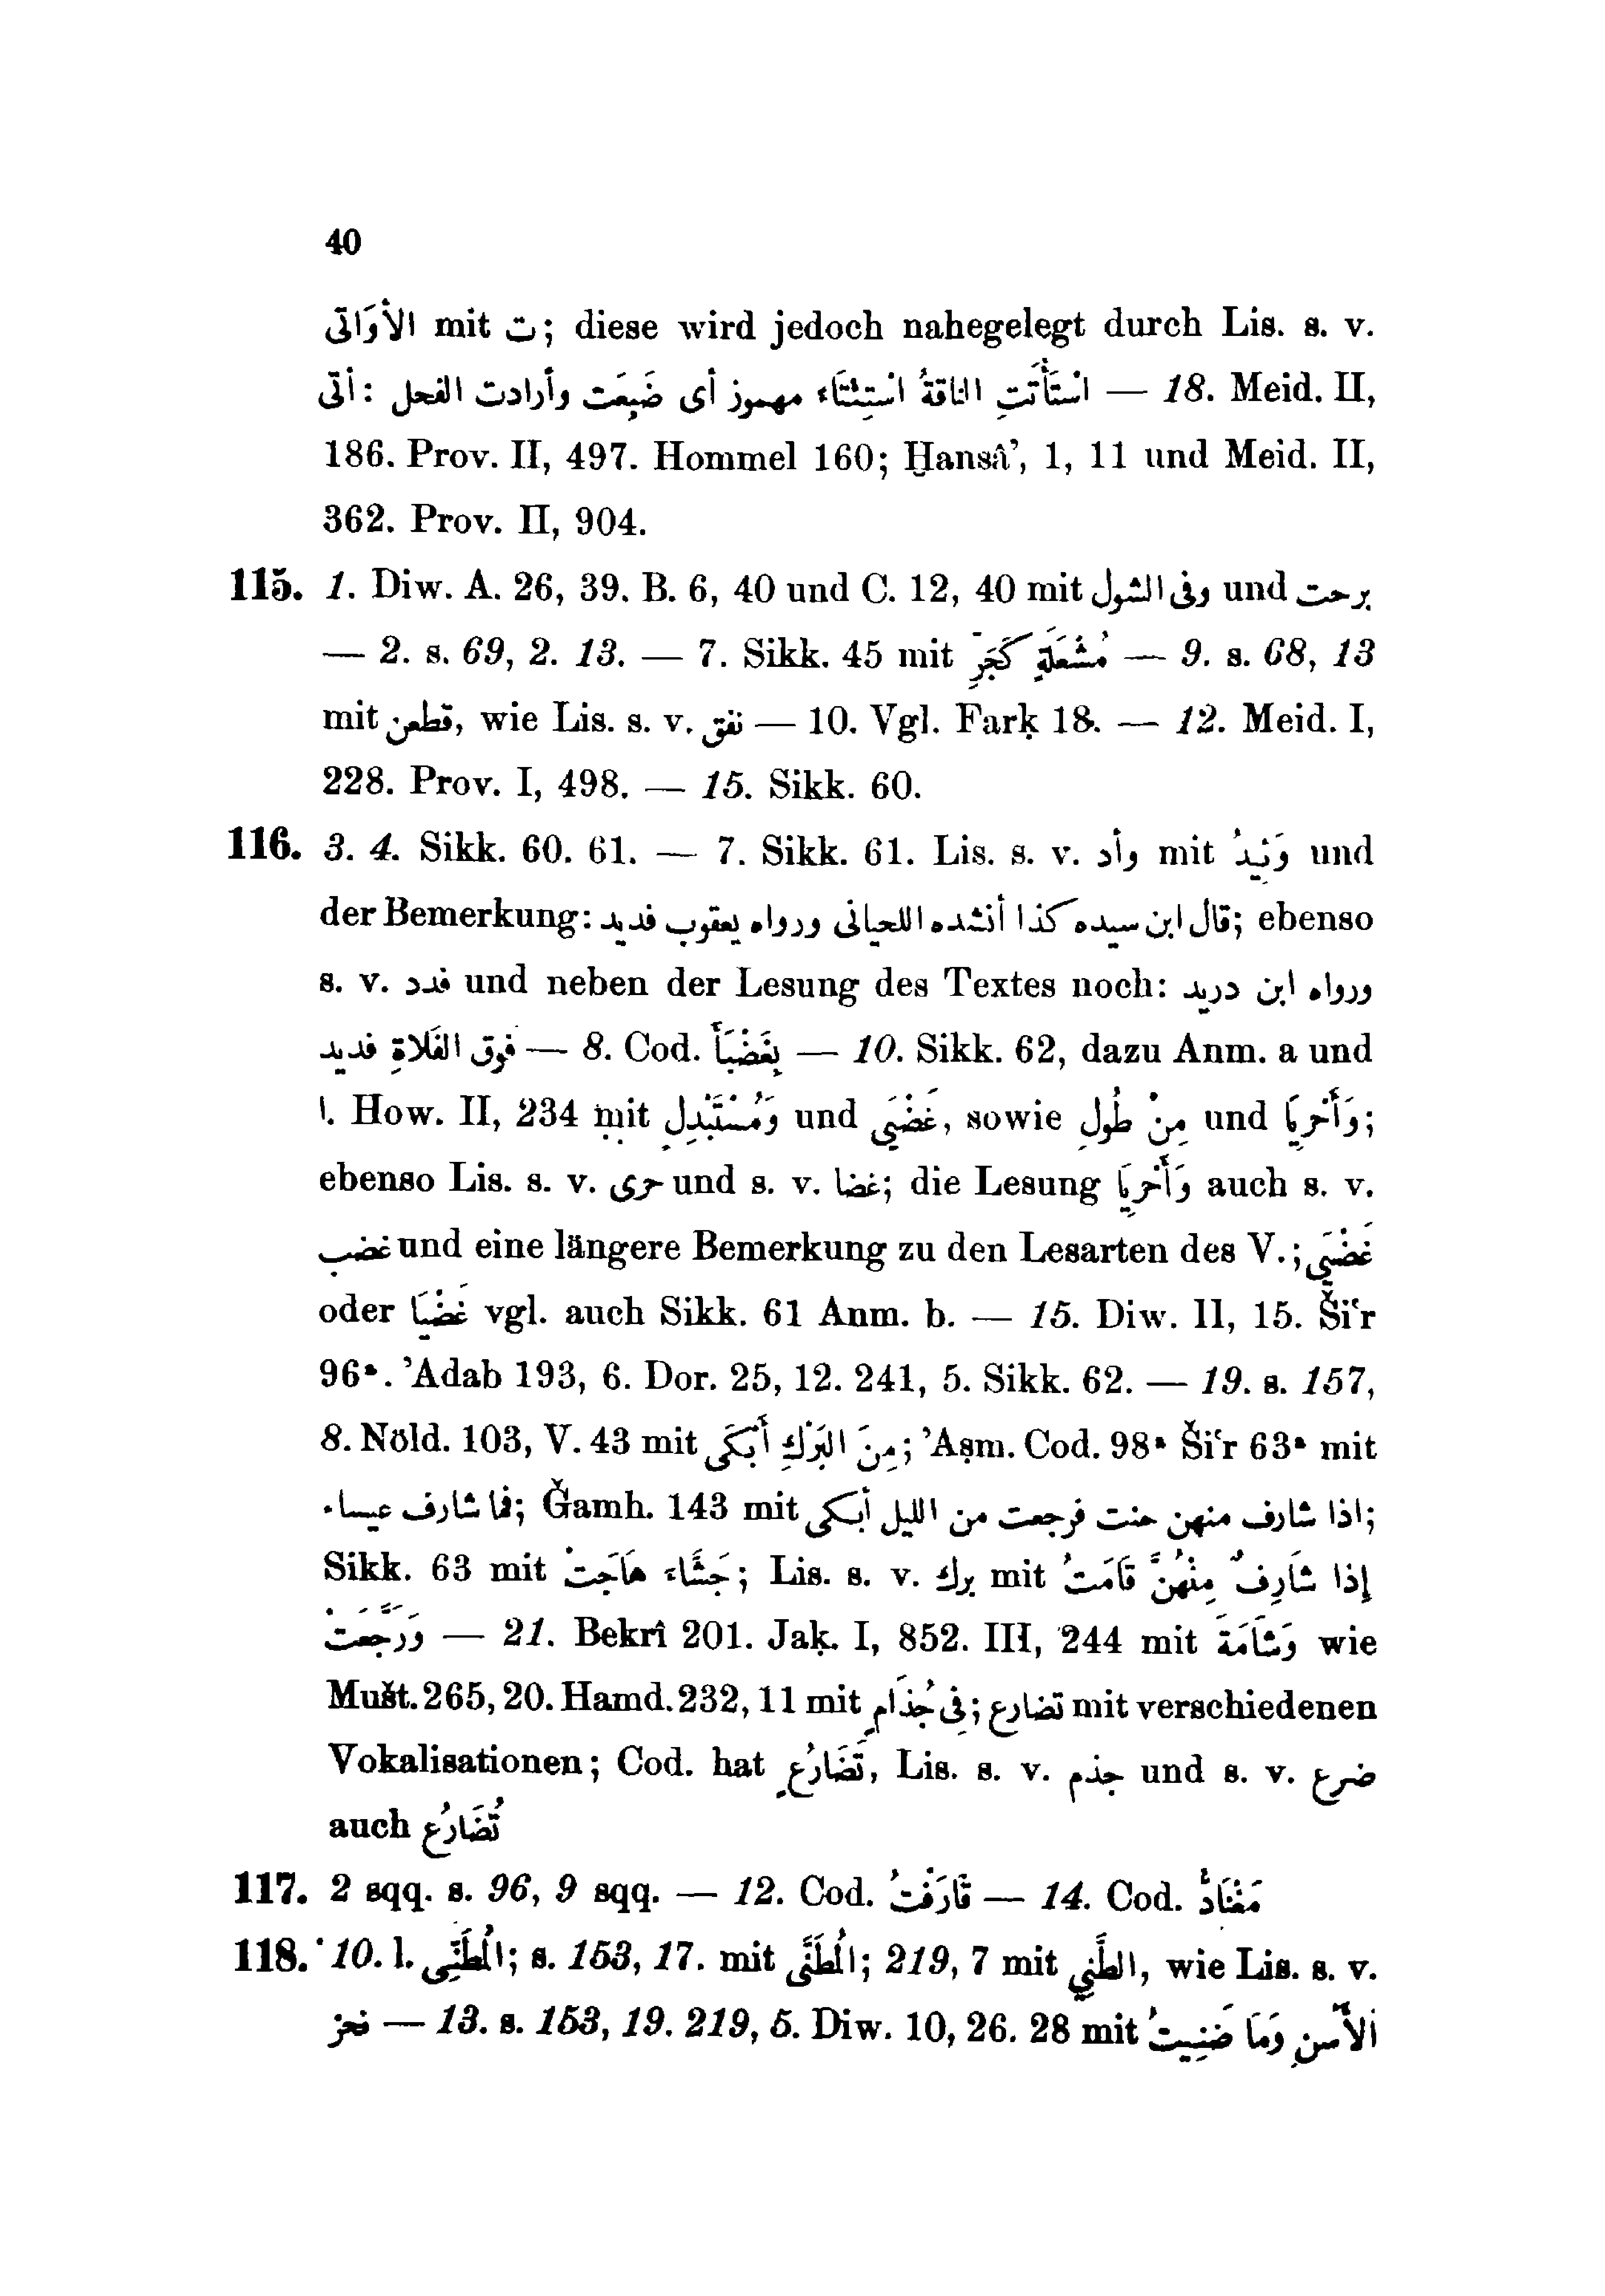 40
الأَوَاتى mit ت; diese wird jedoch nahegelegt durch Lis. s. v.
أتى : اسْتَأْتَتِ الناقةُ اسْتِئْتاء مهموز أى ضَبِعَت وأرادت الفحل — 18. Meid. II,
186. Prov. II, 497. Hommel 160; Ḫansâ’, 1, 11 und Meid. II,
362. Prov. II, 904.
115. 1. Diw. A. 26, 39. B. 6, 40 und C. 12, 40 mit وفى الشول und برحت
— 2. s. 69, 2. 13. — 7. Sikk. 45 mit مُشْعَلَةٍ كَجَرِّ — 9. s. 68, 13
mit قطعن, wie Lis. s. v. نفق — 10. Vgl. Farḳ 18. — 12. Meid. I,
228. Prov. I, 498. — 15. Sikk. 60.
116. 3. 4. Sikk. 60. 61. — 7. Sikk. 61. Lis. s. v. وأد mit وَئيدُ und
der Bemerkung: قال ابن سيده كذا أنشده اللحيانى ورواه يعقوب فديد; ebenso
s. v. فدد und neben der Lesung des Textes noch: ورواه ابن دريد
فوق الفَلاةِ فديد — 8. Cod. بِغَضْبَأَ — 10. Sikk. 62, dazu Anm. a und
l. How. II, 234 mit وَمُسْتَبْدِلٍ und غَضْبَى, sowie مِنْ طُولِ und وَأَحْرِيَا;
ebenso Lis. s. v. حرى und s. v. غضا; die Lesung وَأَحْرِيَا auch s. v.
غضب und eine längere Bemerkung zu den Lesarten des V.; غَضْبَى
oder غَضْيَا vgl. auch Sikk. 61 Anm. b. — 15. Diw. II, 15. Ši‘r
96ᵃ. ’Adab 193, 6. Dor. 25, 12. 241, 5. Sikk. 62. — 19. s. 157,
8. Nöld. 103, V. 43 mit مِنَ البَرْكِ أَبْكَى; ’Aṣm. Cod. 98ᵃ Ši‘r 63ᵃ mit
فما شارف عيساء; Ǧamh. 143 mit اذا شارف منهن حنت فرجعت من الليل أبكى;
Sikk. 63 mit جَشَّاء هَاجَتْ; Lis. s. v. برك mit إذا شَارِفٌ مِنْهُنَّ قَامَتُ
وَرَجَّعَتْ — 21. Bekrî 201. Jaḳ. I, 852. III, 244 mit وَشَامَةَ wie
Mušt. 265, 20. Hamd. 232, 11 mit فِى جُذَامٍ; تضارع mit verschiedenen
Vokalisationen; Cod. hat تَضَارُعٍ, Lis. s. v. جذم und s. v. ضرع
auch تُضَارُع
117. 2 sqq. s. 96, 9 sqq. — 12. Cod. قَارَفْتُ — 14. Cod. مَقْتَادُ
118. 10. l. الْطَنِّى; s. 153, 17. mit الْطَنَّى; 219, 7 mit الطَّنِي, wie Lis. s. v.
نحز — 13. s. 153, 19. 219, 5. Diw. 10, 26. 28 mit الأمْسِ وَمَا ضَنِيتُ